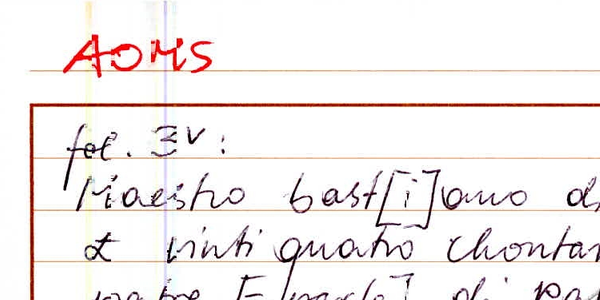 AOMS
fol. 3v:
Maestro bast[i]ano d
£ vinti quatro chonta
di